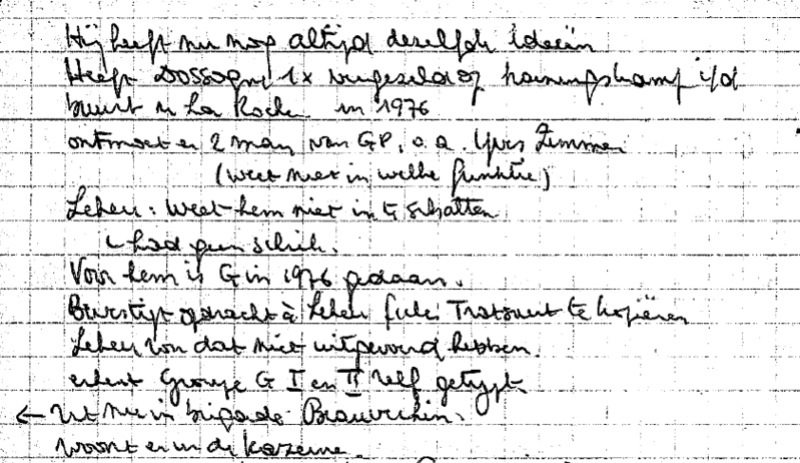 Hij heeft nu nog altijd dezelfde ideeën
Heeft Dossogne 1x vergezeld op trainingskamp i/d
buurt v La Roche in 1976
ontmoet er 2 man van GP, o.a. Yves Zimmer
(weet niet in welke funktie)
Lekeu: weet hem niet in te schatten
↳ had geen schik.
Voor hem is G in 1976 gedaan.
Bevestigt opdracht à Lekeu fiches Tratsaert te kopiëren
Lekeu zou dat niet uitgevoerd hebben.
erkent Groupe G I en II zelf getypt.
← Zit nu in brigade Beauvechain.
woont er in de kazerne.